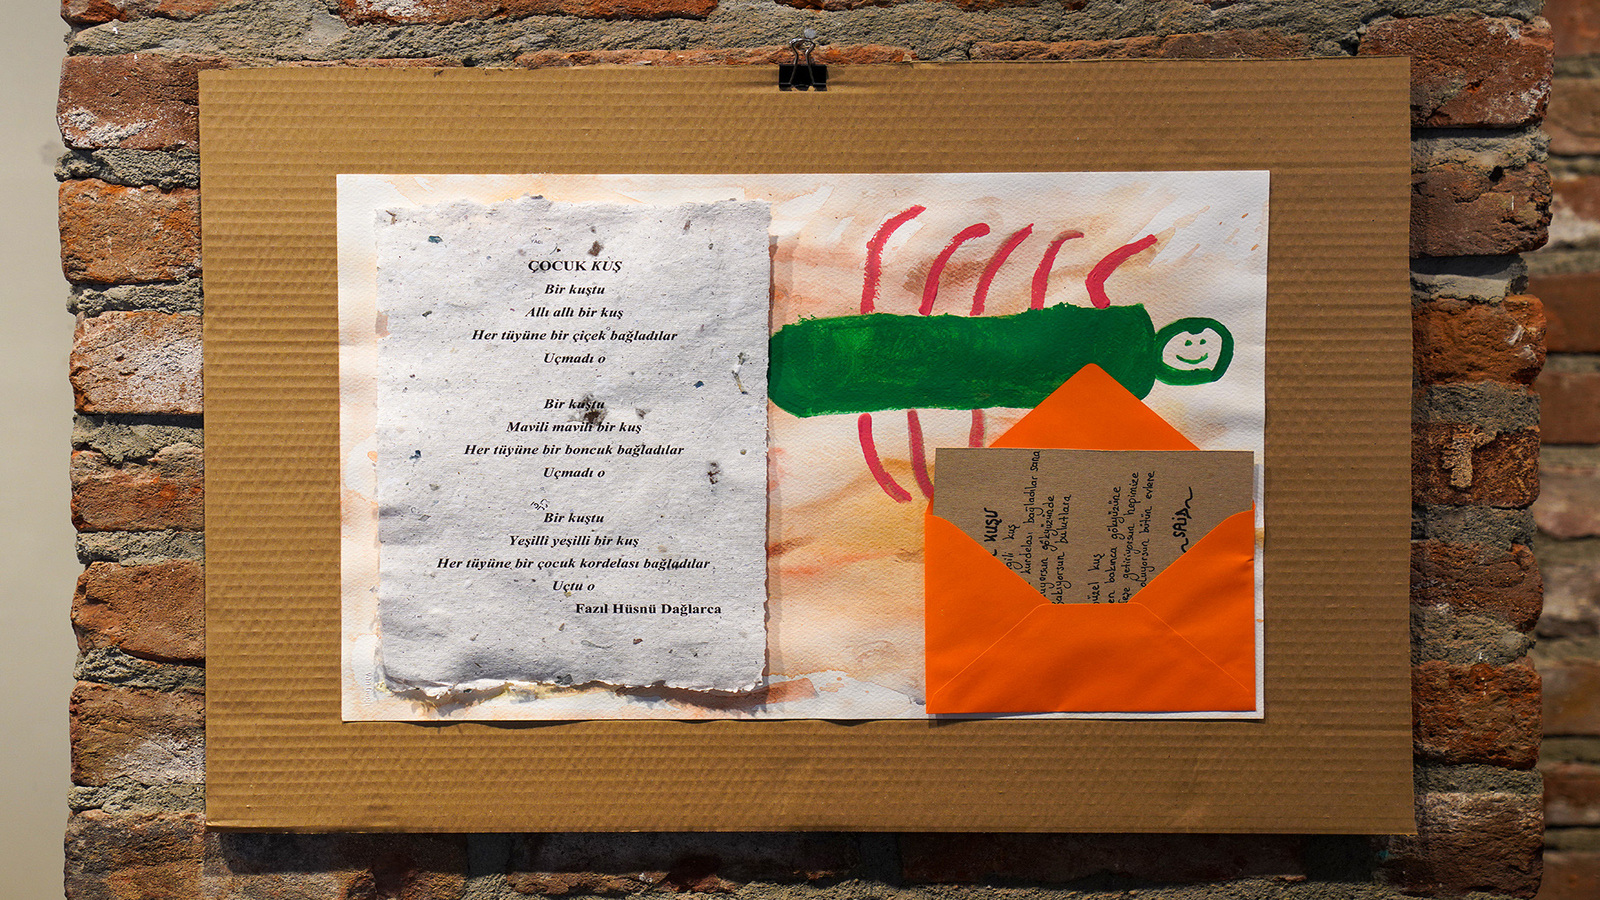 ÇOCUK KUŞ
Bir kuştu
Allı allı bir kuş
Her tüyüne bir çiçek bağladılar
Uçmadı o
Bir kuştu
Mavili mavili bir kuş
Her tüyüne bir boncuk bağladılar
Uçmadı o
Bir kuştu
Yeşilli yeşilli bir kuş
Her tüyüne bir çocuk kordelası bağladılar
Uçtu o
Fazıl Hüsnü Dağlarca
KUŞU
kuş
kurdelası bağladılar sana
gökyüzünde
bulutlara
kuş
bakınca gökyüzüne
getiriyorsun hepimize
oluyorsun bütün evlere
~SAİD~